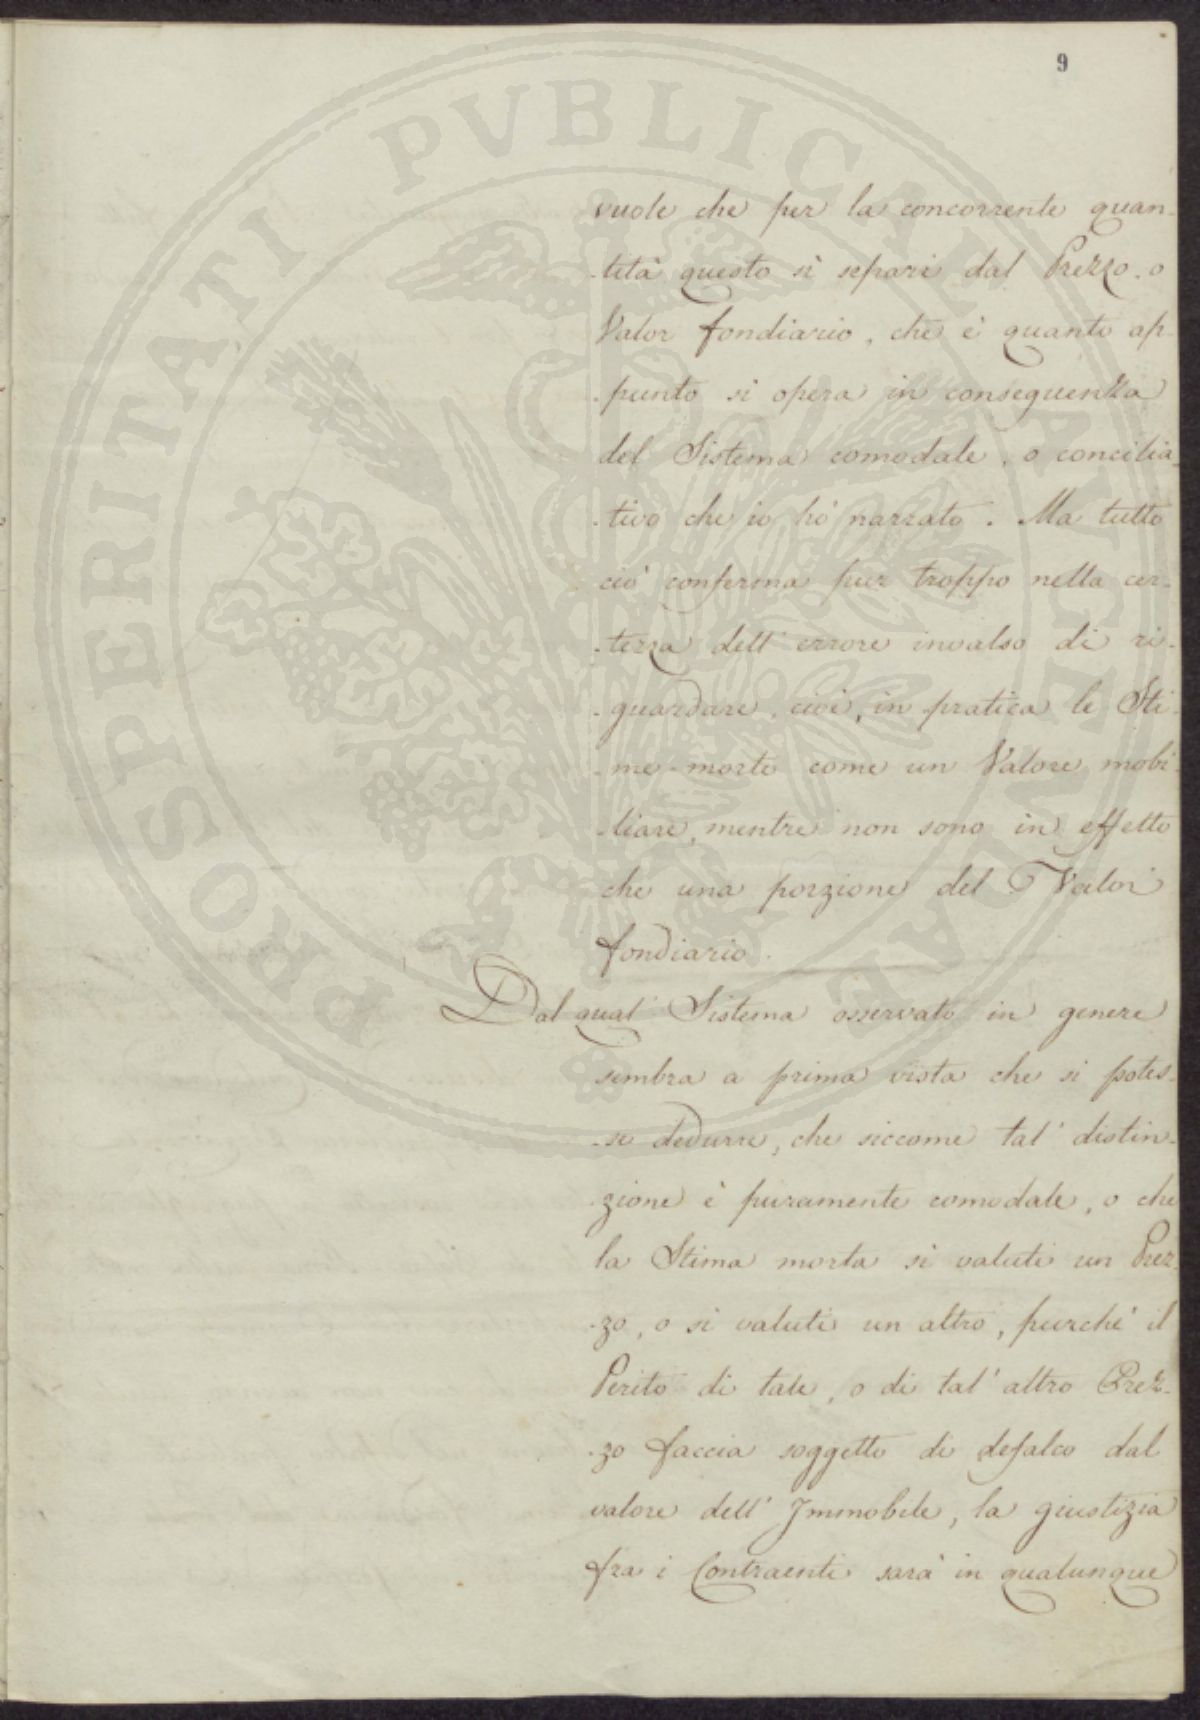 9
PROSPERITATI PVBLICAE AVGENDAE
vuole che per la concorrente quan-
-tità questo si separi dal Prezzo, o
Valor fondiario, che è quanto ap-
-punto si opera in conseguenza
del Sistema comodale, o concilia-
-tivo che io hò narrato. Ma tutto
ciò conferma pur troppo nella cer-
-tezza dell' errore invalso di ri-
-guardare, cioè, in pratica le Sti-
-me-morte come un Valore mobi-
-liare, mentre non sono in effetto
che una porzione del Valor
fondiario.
Dal qual' Sistema osservato in genere
sembra a prima vista che si potes-
-se dedurre, che siccome tal' distin-
-zione è puramente comodale, o che
la Stima morta si valuti un Prez-
-zo, o si valuti un altro, purchè il
Perito di tale, o di tal' altro Prez-
-zo faccia soggetto di defalco dal
valore dell' Immobile, la giustizia
fra i Contraenti sarà in qualunque